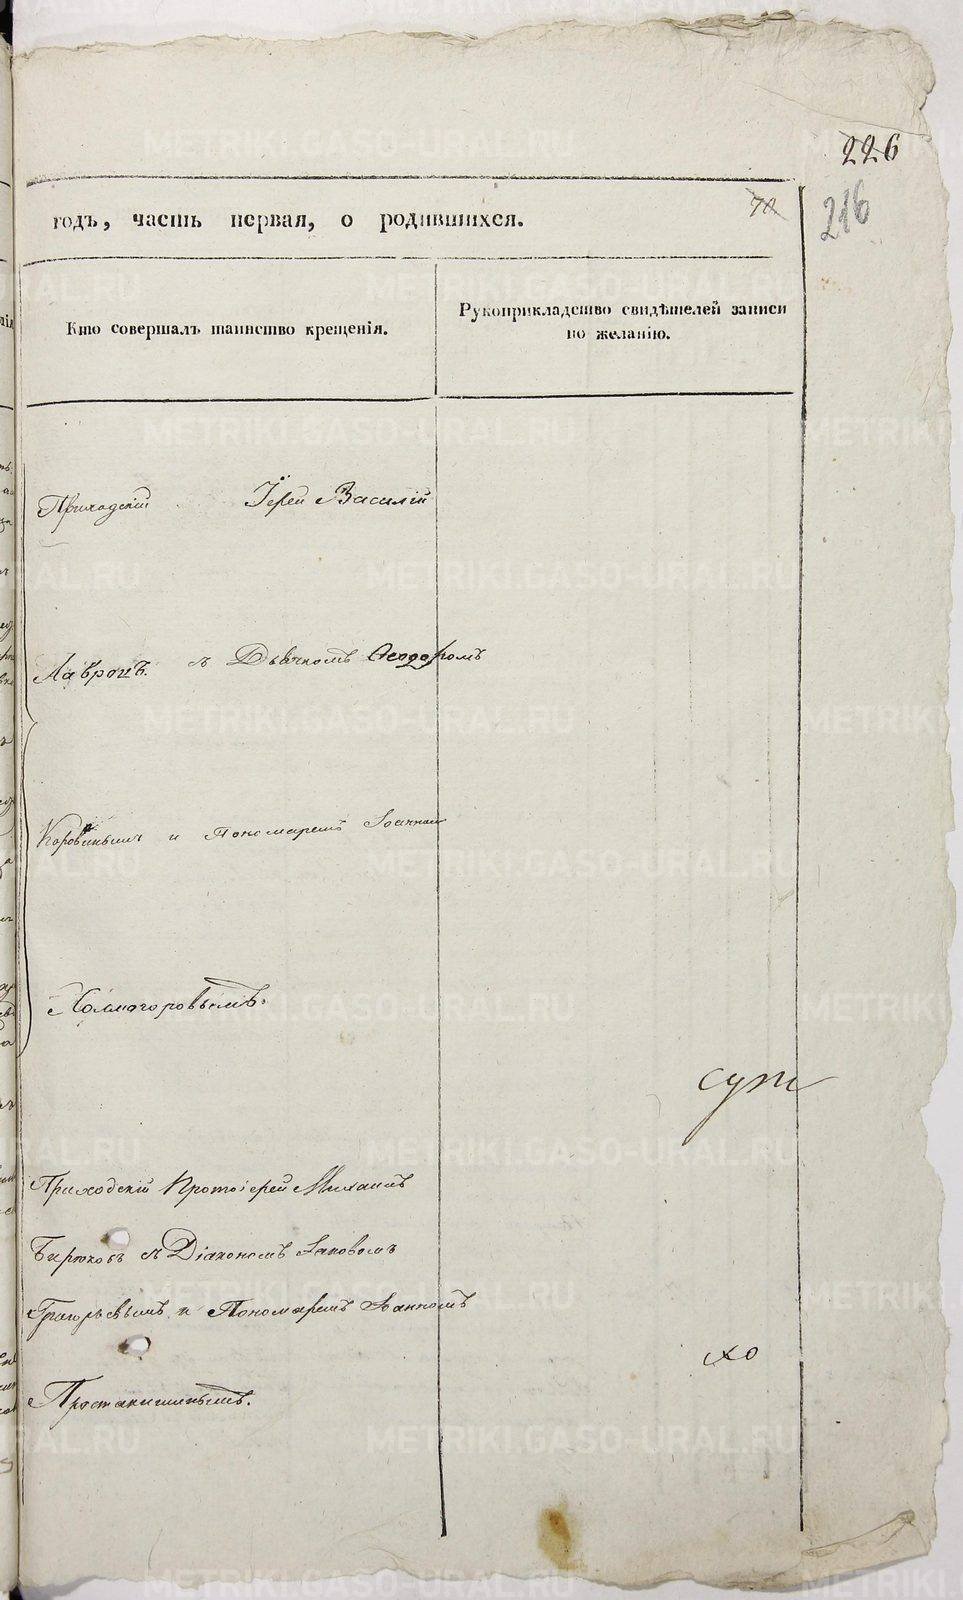 226
216
годъ, часть первая, о родившихся.
Кто совершалъ таинство крещенія.
Рукоприкладство свидѣтелей записи
по желанію.
Приходскій Іерей Василій
Лавровъ. съ Дьячкомъ Ѳеодоромъ
Коровинымъ и Пономаремъ Іоанномъ
Холмогоровымъ.
Приходскій Протоіерей Михаилъ
Бирюковъ съ Діакономъ Іаковомъ
Григорьевымъ и Пономаремъ Іоанномъ
Простакишинымъ.
METRIKI.GASO-URAL.RU